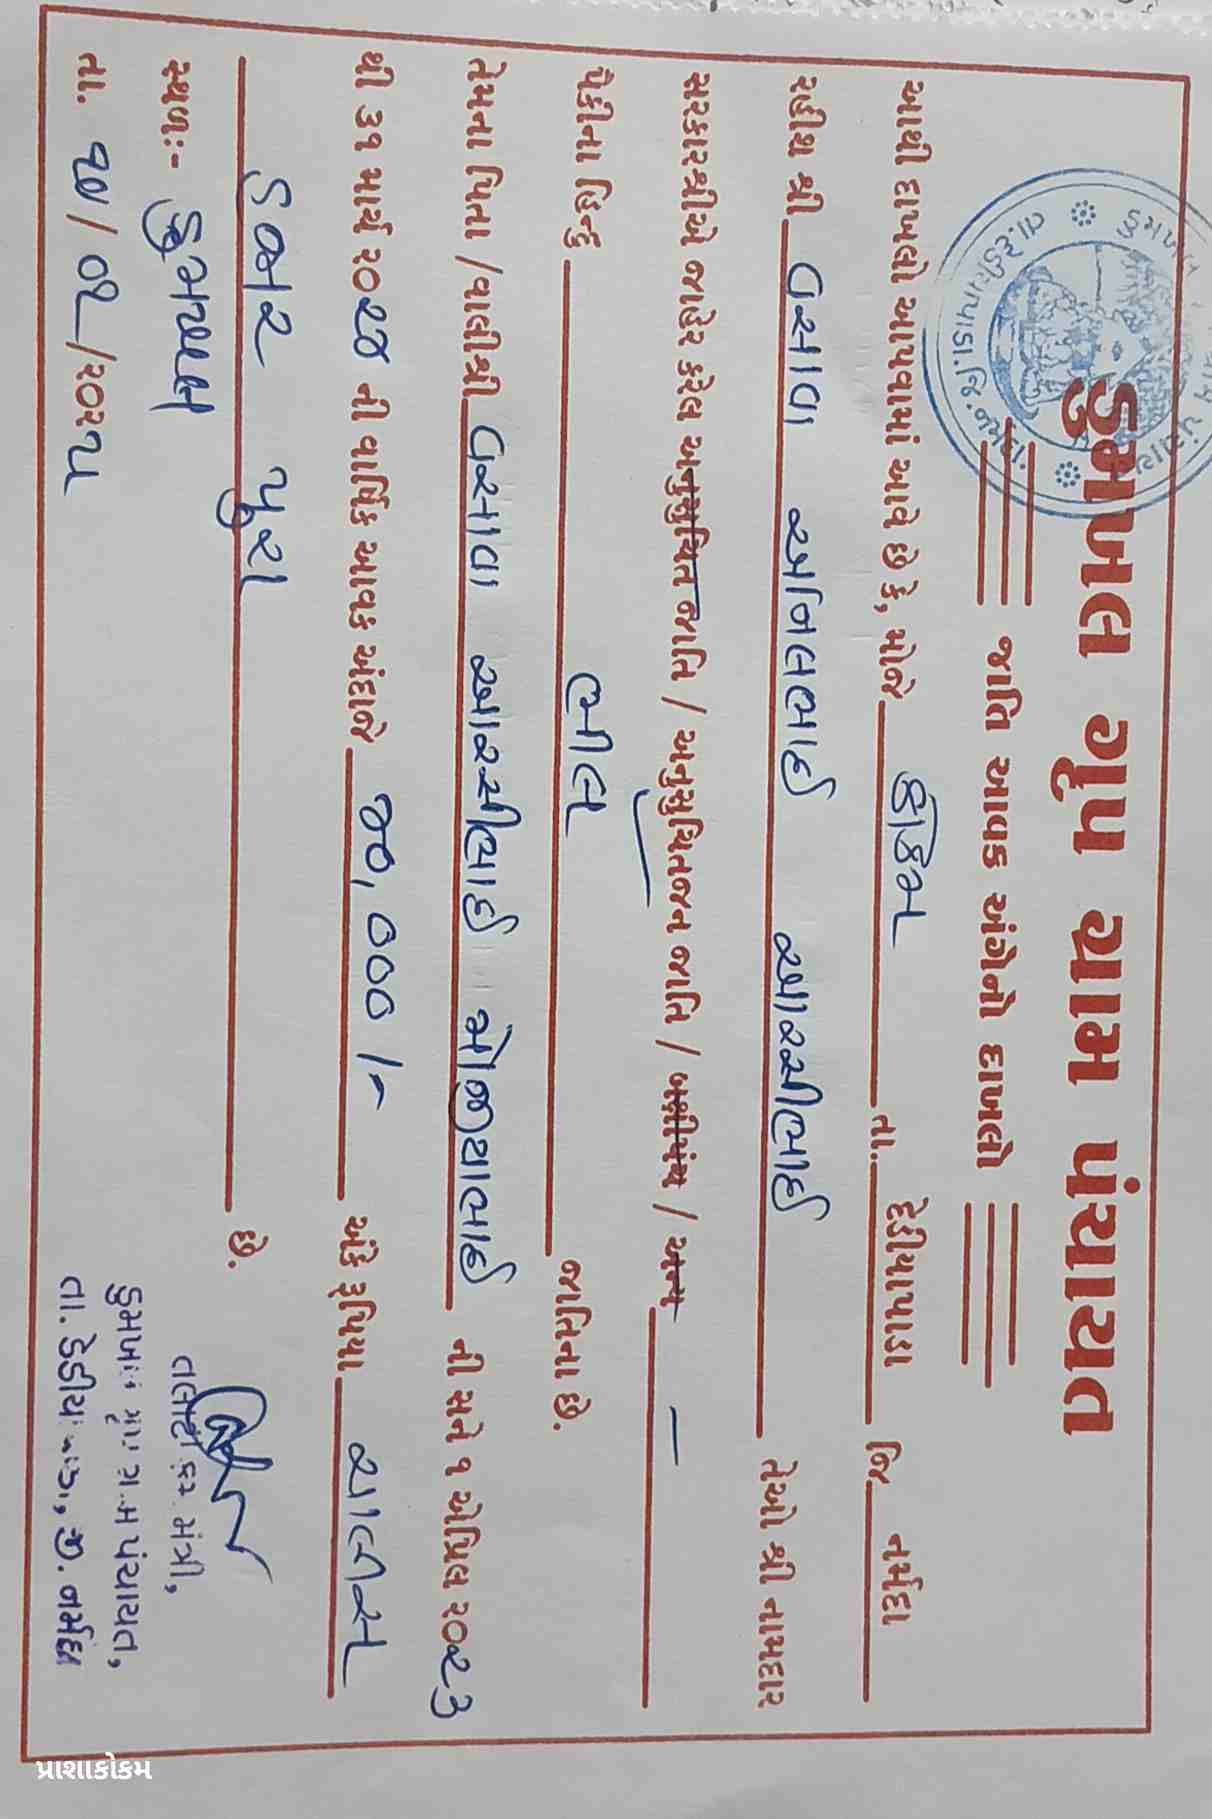 ડુમખલ ગૃપ ગ્રામ પંચાયત
જાતિ આવક અંગેનો દાખલો
આથી દાખલો આપવામાં આવે છે કે, મોજે કોકમ તા. દેડીયાપાડા જિ. નર્મદા
રહીશ શ્રી વસાવા અનિલભાઈ આરસીભાઈ તેઓ શ્રી નામદાર
સરકારશ્રીએ જાહેર કરેલ અનુસુચિત જાતિ / અનુસુચિતજન જાતિ / બક્ષીપંચ / અન્ય —
પેકીના હિન્દુ ભીલ જાતિના છે.
તેમના પિતા / વાલીશ્રી વસાવા આરસીભાઈ ની સને ૧ એપ્રિલ ૨૦૨૩
થી ૩૧ માર્ચ ૨૦૨૪ ની વાર્ષિક આવક અંદાજે ૪૦,૦૦૦/- અંકે રૂપિયા ચાલીસ
હજાર પુરા છે.
સ્થળઃ- ડુમખલ
તા. ૧૫/૦૨/૨૦૨૫
તલાટી કમ મંત્રી,
ડુમખલ ગૃપ ગ્રામ પંચાયત,
તા. દેડીયાપાડા, જી. નર્મદા
પ્રાશાકોકમ